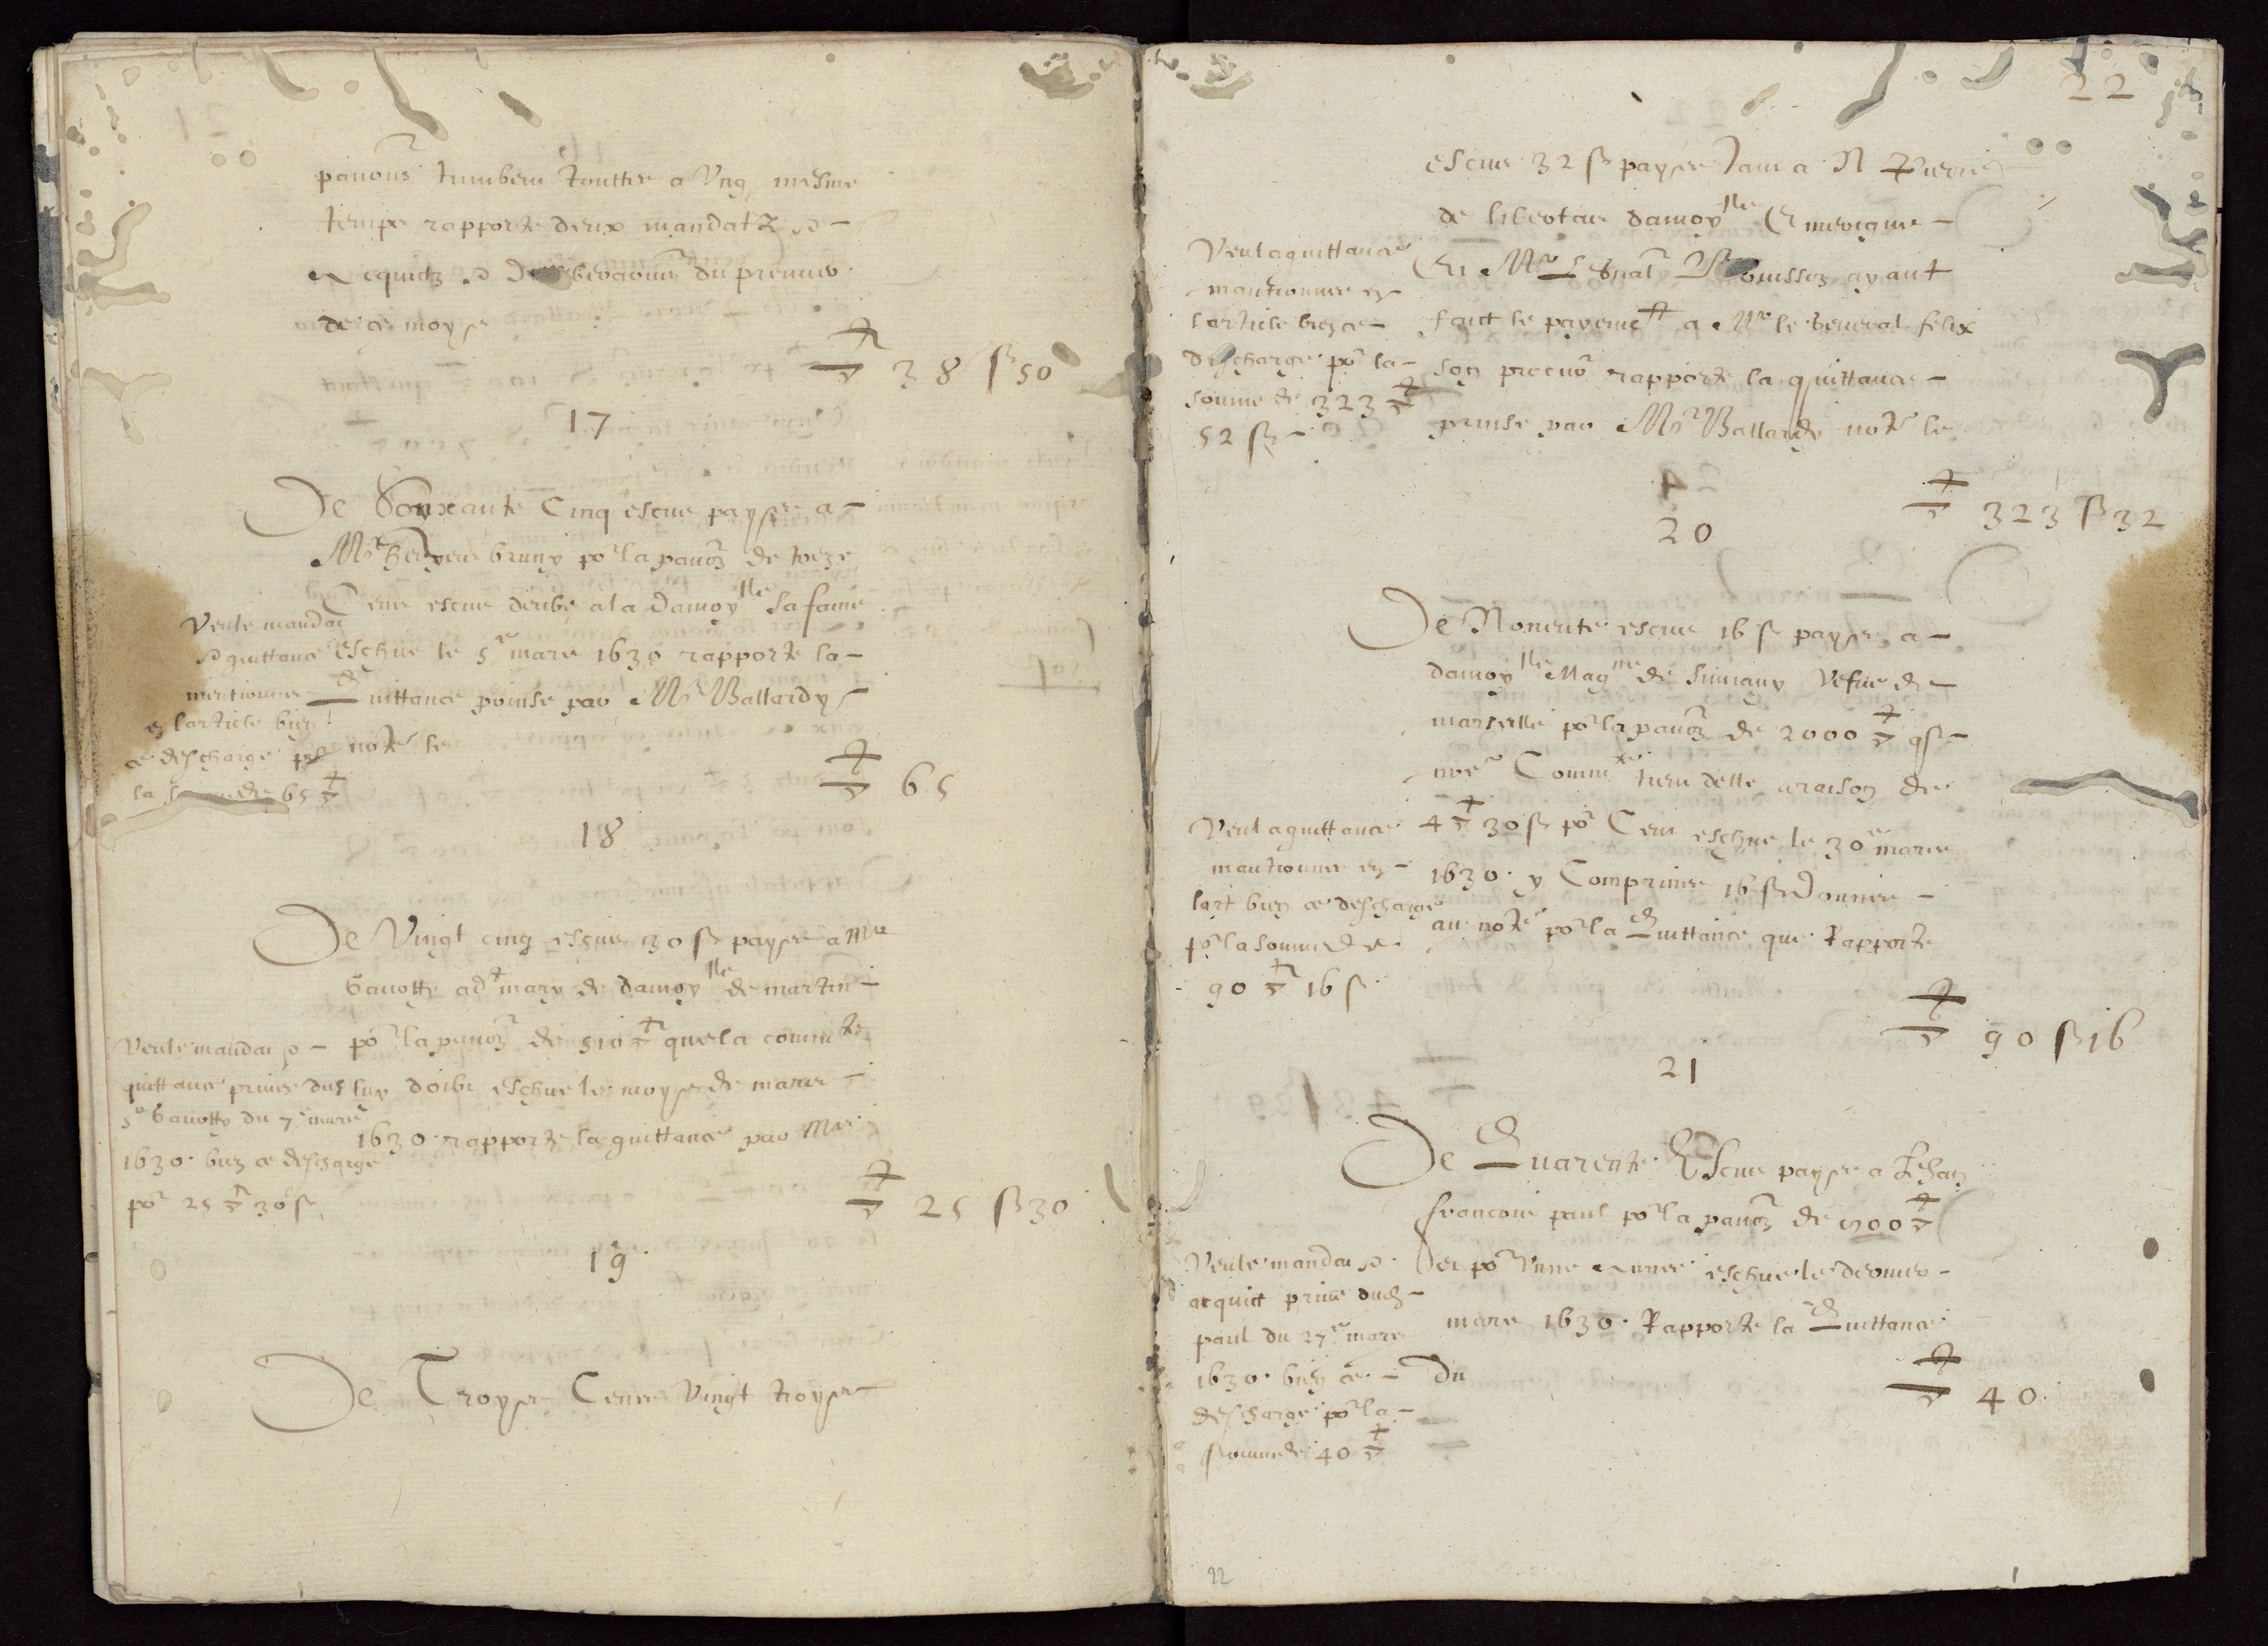 pauons tumbent touttes a Ung mesme
temps rapporte deux mandatz &
acquitz & du premier
de ce moys
38 ß 50
17
De Soixante Cinq escus payes a
Mr bruny por la pauon de treze
Cens escus deube a la damoylle sa fame
eschue le 5e mars 1630 rapporte la
Quittance prinse par Mr Ballardy
notere le
Veu le mandat
& quittance
mentionnes
en larticle bien
ce descharge por
la 65
65
18
De Vingt cinq escus 30 ß payes a Mre
Gauotty adt mary de damoylle de martin
por la pauon de 510 que la commte
luy doibt eschue le moys de mars
1630 rapporte la quittance par Mre
Veu le mandat &
quittance prinse dud
sr Gauotty du 7e mars
1630 bien ce descharge
por 25 30 ß
25 ß 30
19
De Troys Cens Vingt troys
22
escus 32 ß payes
de libertat damoylle Emerigue
ayant
faict le payemet a Mre le General felix
son procur rapporte la quittance
prinse par Mr Ballardy notere le
Veu la quittance
mantionnee en
larticle bien ce
descharge por la
somme de 323
52 ß
323 ß 32
20
De Nonente escus 16 ß payes a
damoylle Magne de Simiany Vefue de
marseille por la pauon de 2000 qse
nre Commte tient delle a raison de
4 30 ß por Cent eschue le 30e mars
1630 y Comprins 16 ß donnes
au notere por la Quittance que Rapporte
Veu la quittance
mantionnee en
lart bien ce descharge
por la somme de
90 16 ß
90 ß 16
21
De Quarente Escus payes a Jehan
francois paul por la pauon de
et por Unne Annee eschue le dernier
mars 1630 Rapporte la Quittance
du
Veu le mandat &
acquit prins dud
paul du 27e mars
1630 bien ce
descharge por la
somme de 40
40
22